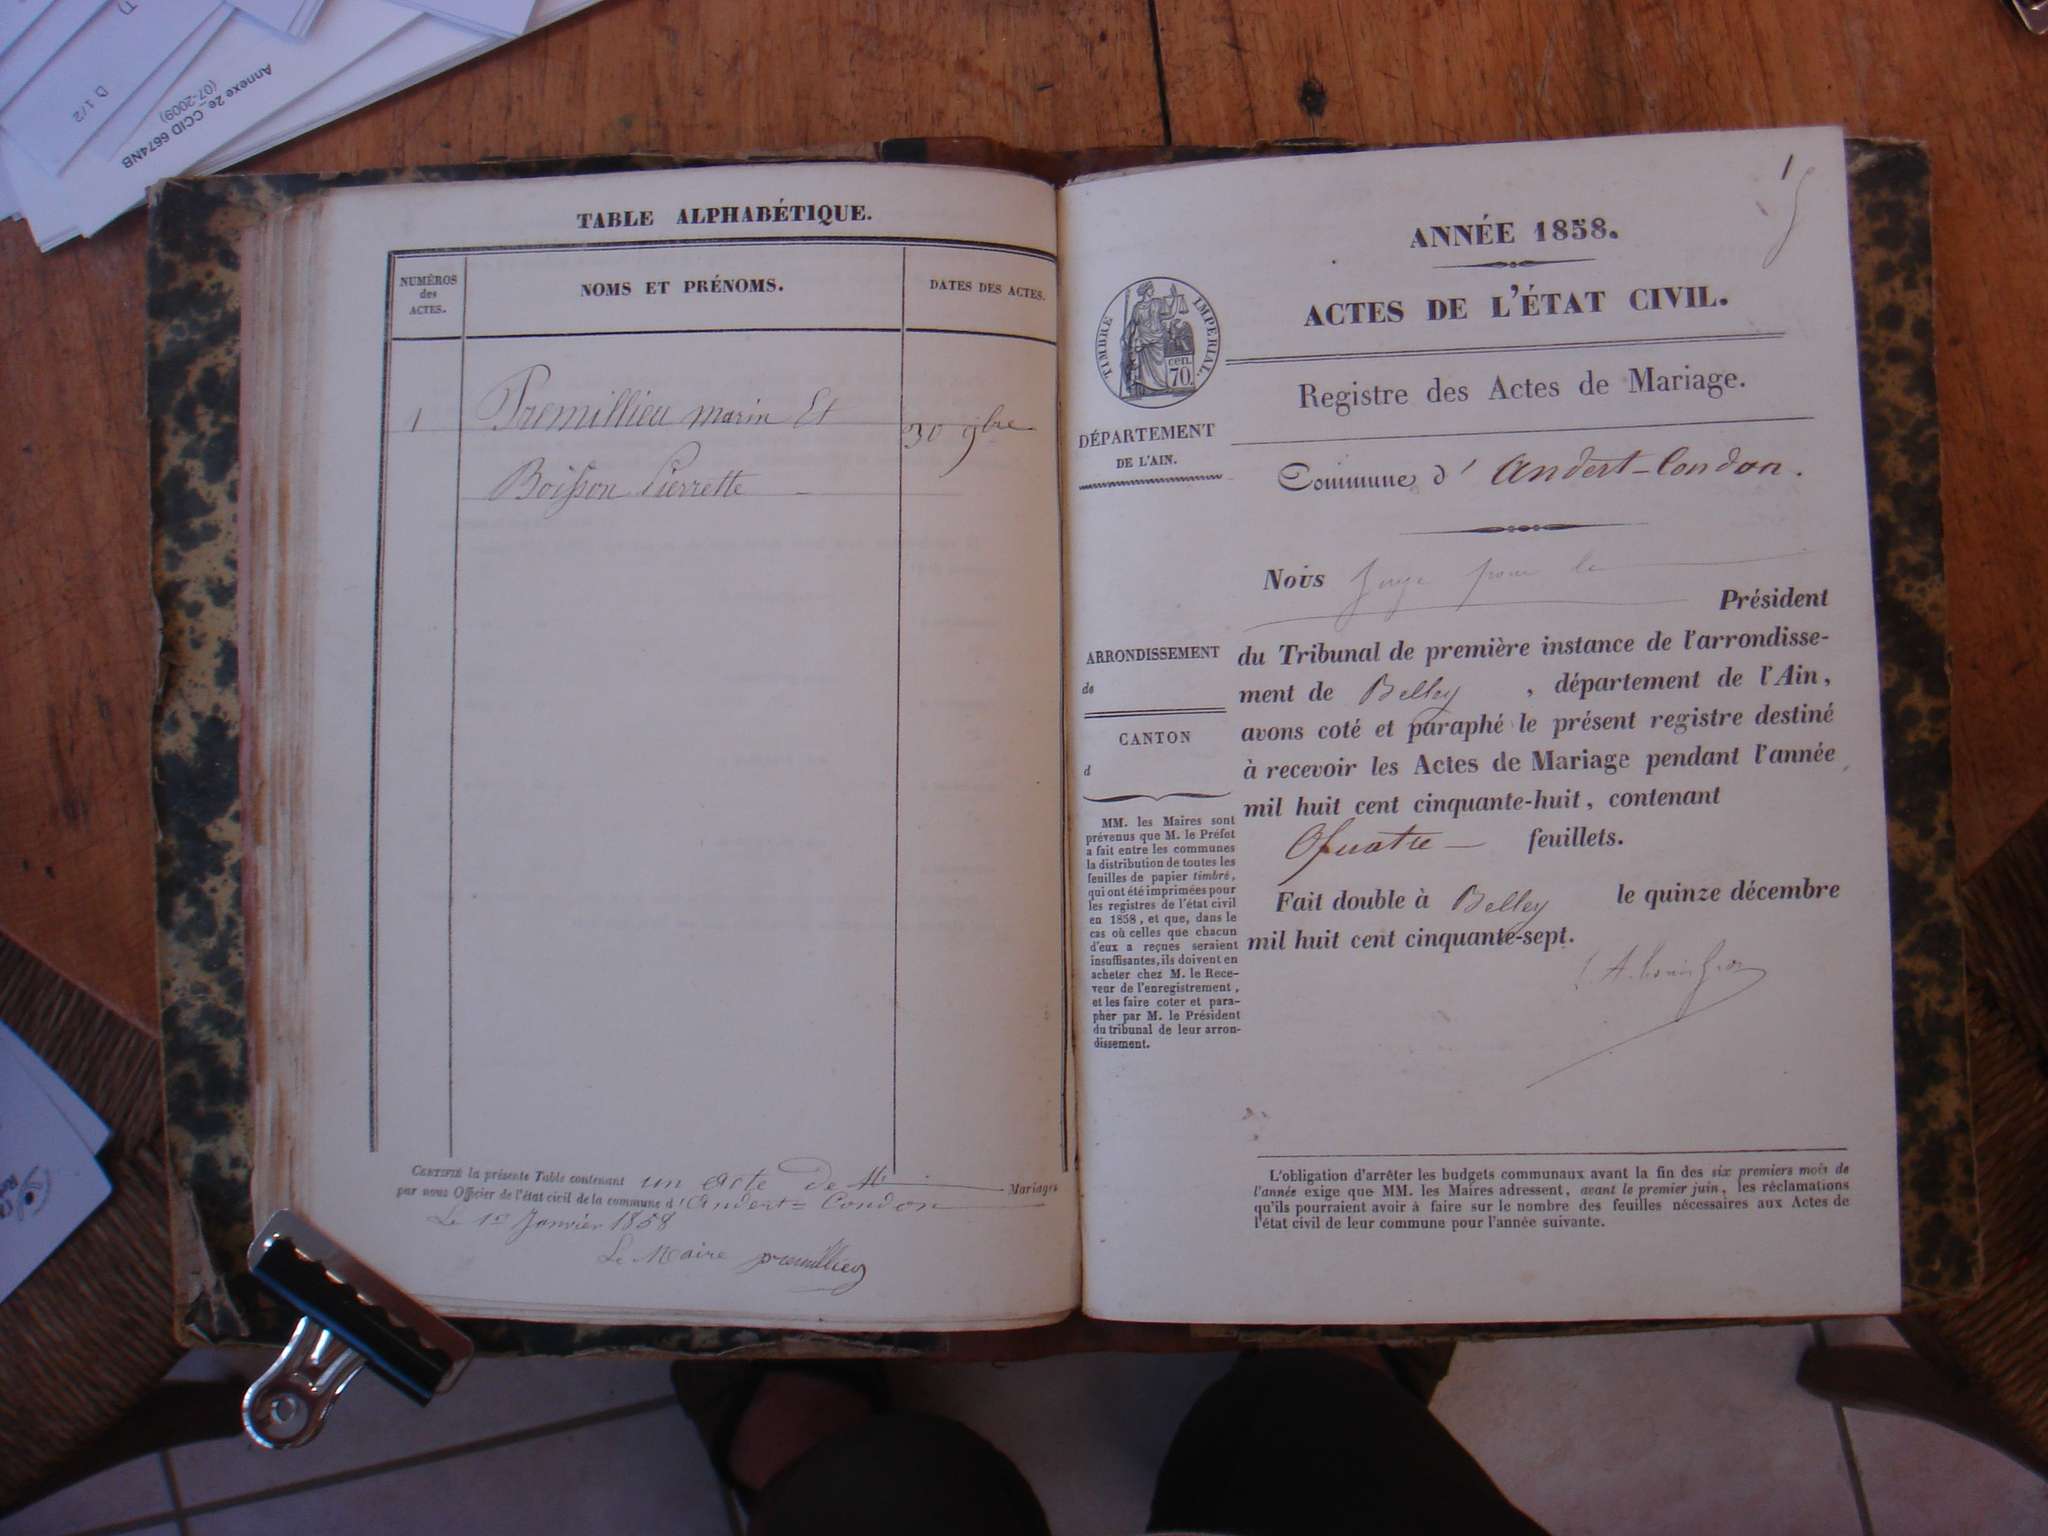 Annexe 2e_CCID 6674NB
(07-2009)
D 1/2
TABLE ALPHABÉTIQUE.
NUMÉROS
des
ACTES.
NOMS ET PRÉNOMS.
DATES DES ACTES.
1 Premillieu marin Et 30 9bre
Boisson Pierrette
CERTIFIÉ la présente Table contenant un acte de M Mariages
par nous Officier de l'état civil de la commune d'Andert=Condon
Le 1er Janvier 1858
Le Maire premillieu
1
ANNÉE 1858.
ACTES DE L'ÉTAT CIVIL.
TIMBRE IMPERIAL.
cen.
70
Registre des Actes de Mariage.
DÉPARTEMENT
DE L'AIN.
Commune d'Andert-Condon.
Nous Juge pour le
Président
du Tribunal de première instance de l'arrondisse-
ment de Belley, département de l'Ain,
avons coté et paraphé le présent registre destiné
à recevoir les Actes de Mariage pendant l'année
mil huit cent cinquante-huit, contenant
Quatre feuillets.
Fait double à Belley le quinze décembre
mil huit cent cinquante-sept.
ARRONDISSEMENT
de
CANTON
d
MM. les Maires sont
prévenus que M. le Préfet
a fait entre les communes
la distribution de toutes les
feuilles de papier timbré,
qui ont été imprimées pour
les registres de l'état civil
en 1858, et que, dans le
cas où celles que chacun
d'eux a reçues seraient
insuffisantes, ils doivent en
acheter chez M. le Rece-
veur de l'enregistrement,
et les faire coter et para-
pher par M. le Président
du tribunal de leur arron-
dissement.
L'obligation d'arrêter les budgets communaux avant la fin des six premiers mois de
l'année exige que MM. les Maires adressent, avant le premier juin, les réclamations
qu'ils pourraient avoir à faire sur le nombre des feuilles nécessaires aux Actes de
l'état civil de leur commune pour l'année suivante.